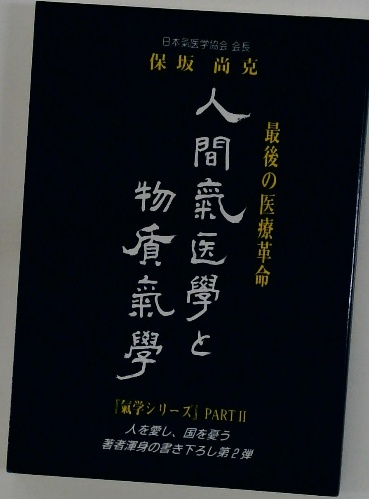 日本氣医学協会 会長
保坂 尚克
最後の医療革命
人間氣医學と
物质氣學
『氣学シリーズ』 PART II
人を愛し、国を憂う
著者渾身の書き下ろし第2弾